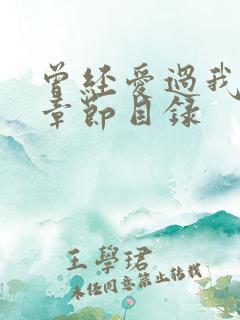 曾经爱過我
章節目录
王學珺
未任同意禁止转載